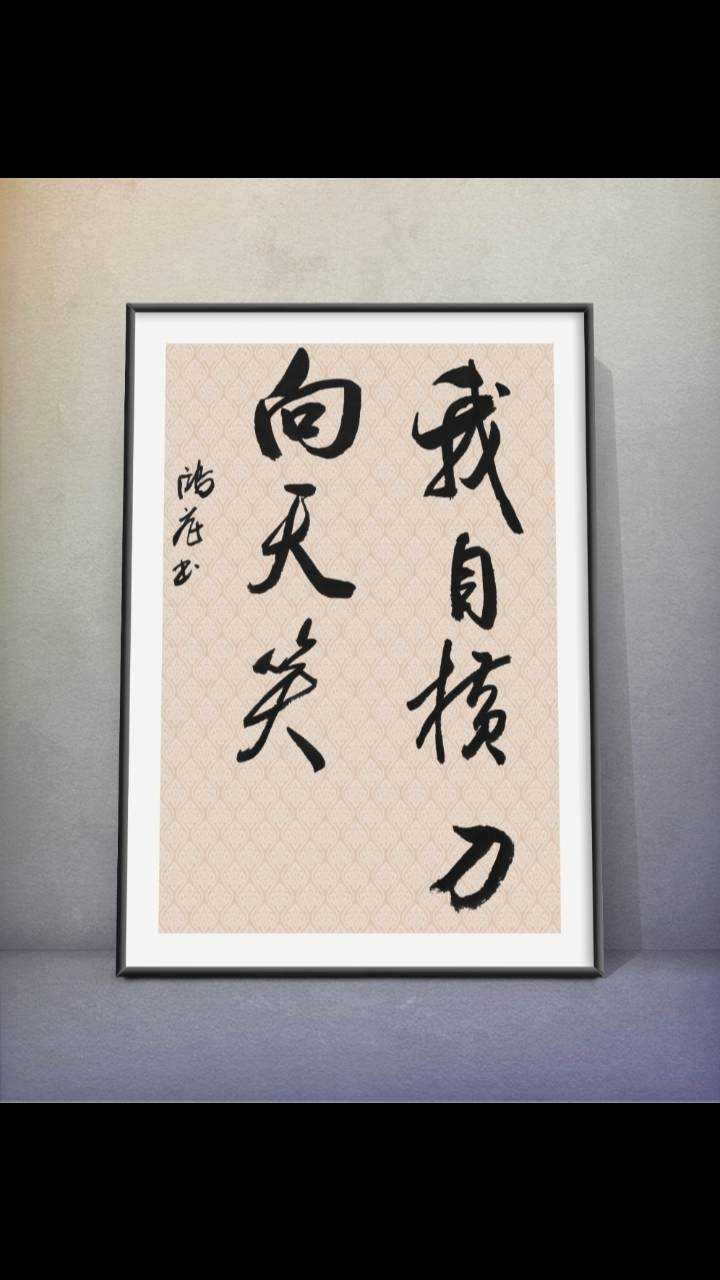 我自横刀
向天笑
书